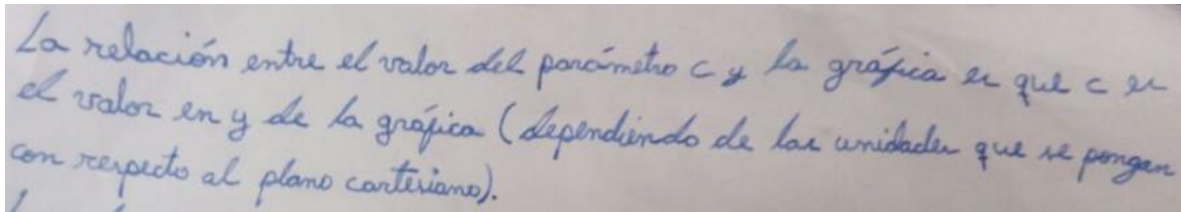 La relación entre el valor del parámetro c y la gráfica es que c es
el valor en y de la gráfica (dependiendo de las unidades que se pongan
con respecto al plano cartesiano).